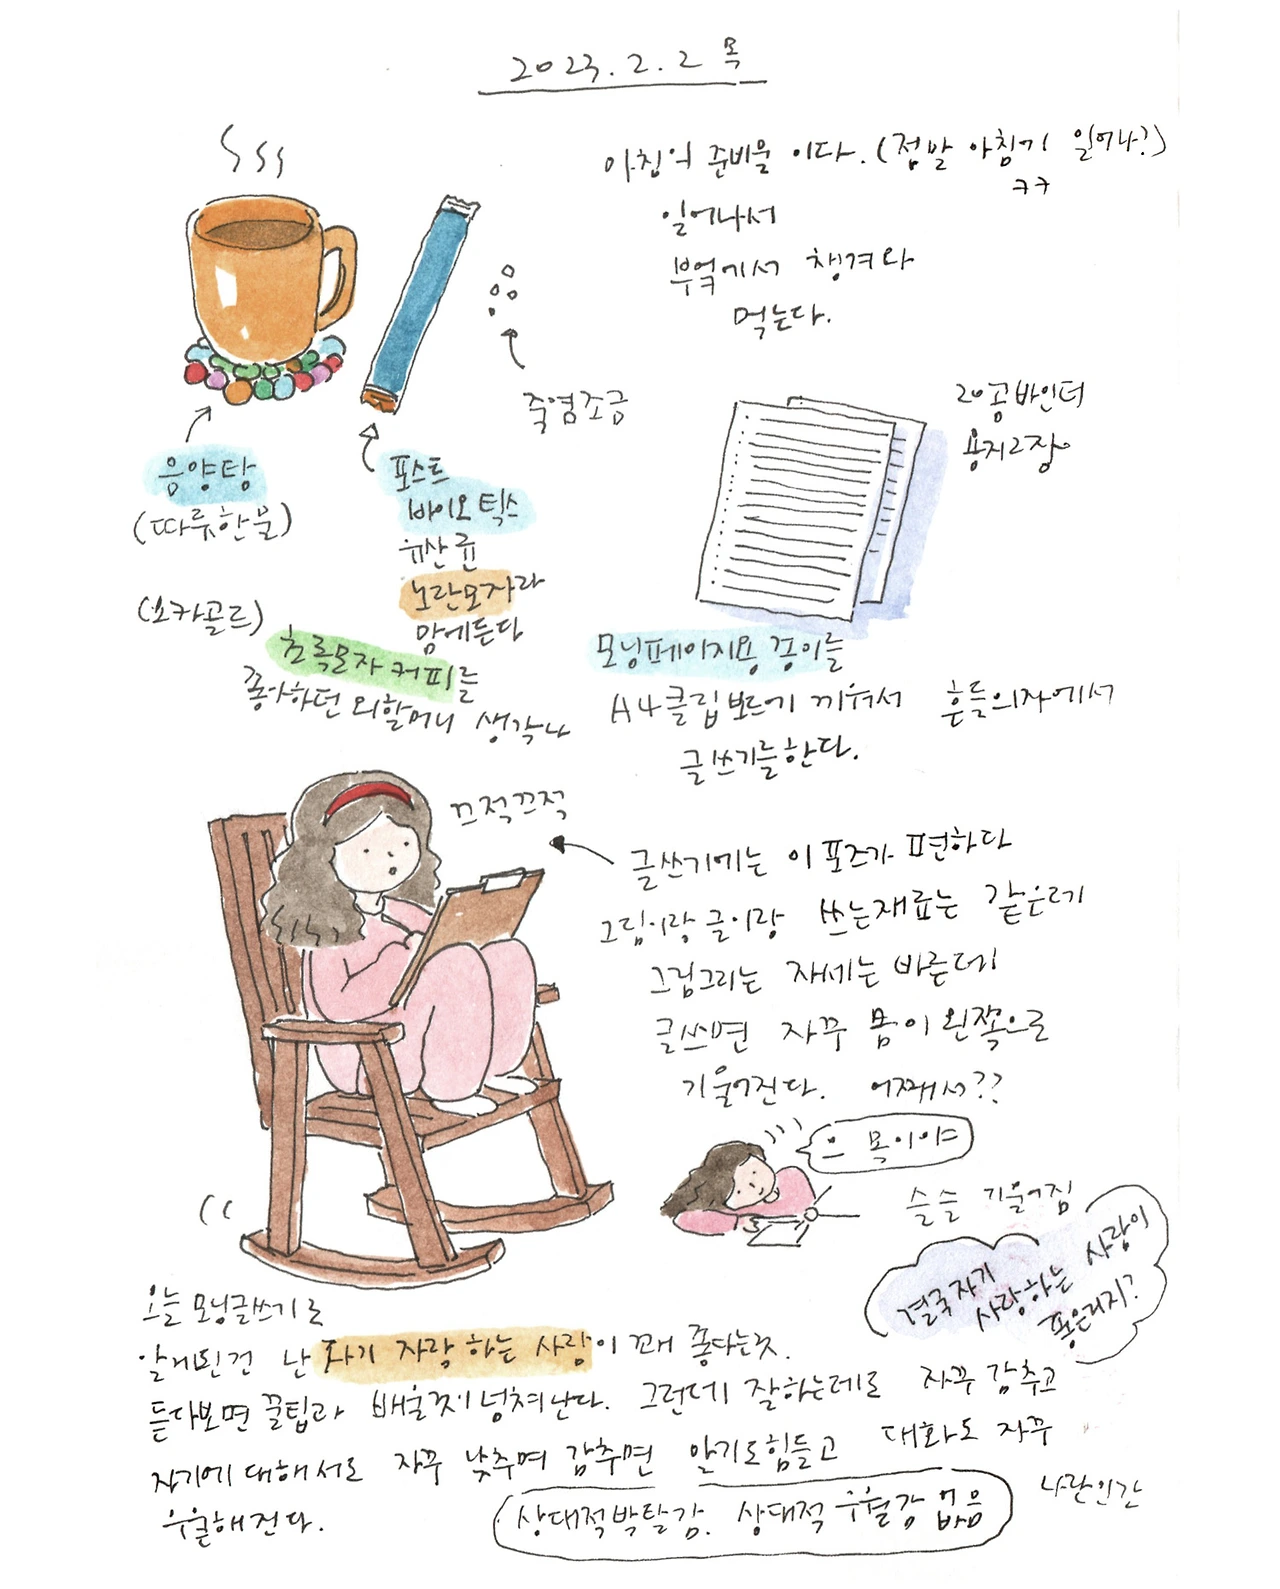 2023.2.2 목
아침의 준비물 이다. (정말 아침에 일어나?)
ㅋㅋ
일어나서
부엌에서 챙겨와
먹는다.
죽염조금
음양탕
(따뜻한물)
포스트
바이오틱스
유산균
노란모자라
맘에든다
(소카골드)
초록모자 커피를
좋아하던 외할머니 생각나
20공바인더
용지2장
모닝페이지용 종이를
A4클립보드에 끼워서 흔들의자에서
글쓰기를한다.
끄적끄적
글쓰기에는 이 포즈가 편하다
그림이랑 글이랑 쓰는재료는 같은데
그림그리는 자세는 바른데
글쓰면 자꾸 몸이 왼쪽으로
기울어진다. 어째서??
으 목이야
슬슬 기울어짐
결국자기
사랑하는 사람이
좋은거지?
오늘 모닝글쓰기로
알게된건 난 자기 자랑 하는 사람이 꽤 좋다는것.
듣다보면 꿀팁과 배울것이 넘쳐난다. 그런데 잘하는데도 자꾸 감추고
자기에 대해서도 자꾸 낮추며 감추면 알기도힘들고 대화도 자꾸
우울해진다.
상대적박탈감. 상대적 우월감 없음
나란인간